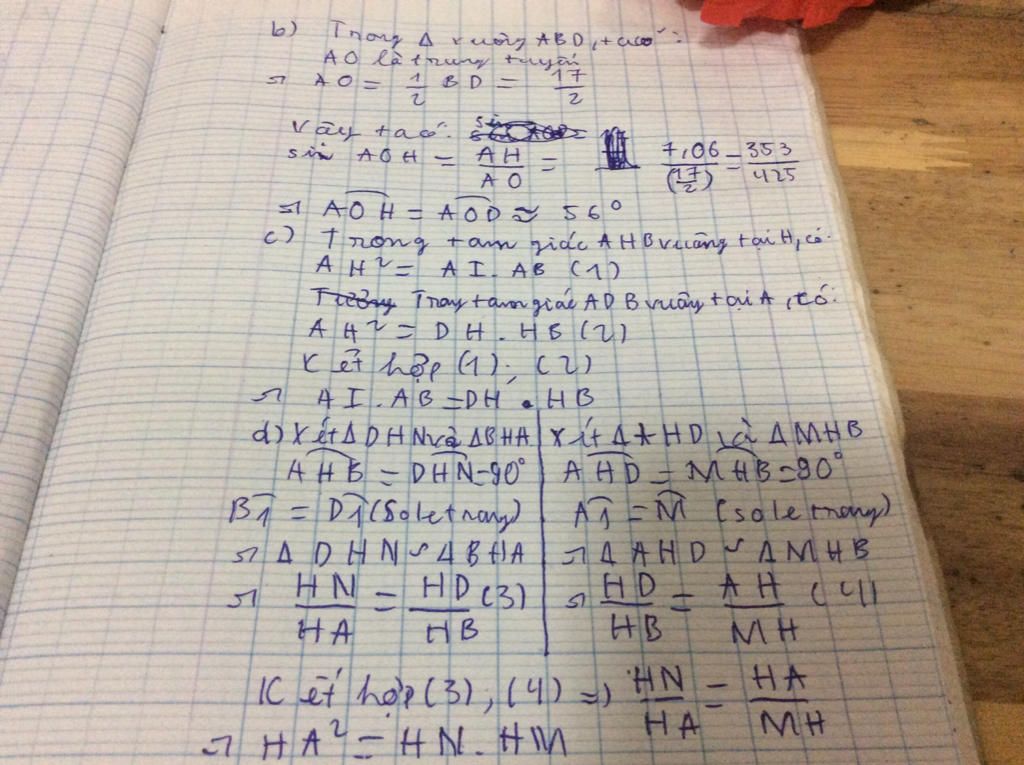 b) Trong Δ vuông ABD, ta có:
AO là trung tuyến
=> AO = 1/2 BD = 17/2
Vậy ta có:
sin AOH = AH/AO = 7,06/(17/2) = 353/425
=> AOH = AOD ≈ 56°
c) Trong tam giác AHB vuông tại H, có:
AH² = AI. AB (1)
Trong tam giác ADB vuông tại A, có:
AH² = DH. HB (2)
Kết hợp (1), (2)
=> AI. AB = DH . HB
d) Xét Δ DHN và ΔBHA
AHB = DHN = 90°
B1 = D1 (Sole trong)
=> Δ DHN ~ ΔBHA
=> HN/HA = HD/HB (3)
Xét Δ AHD và Δ MHB
AHD = MHB = 90°
A1 = M (sole trong)
=> Δ AHD ~ Δ MHB
=> HD/HB = AH/MH (4)
Kết hợp (3), (4) => HN/HA = HA/MH
=> HA² = HN. HM